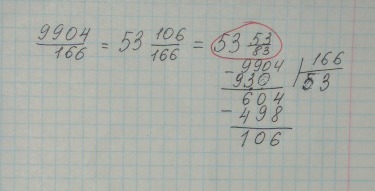 9904/166 = 53 106/166 = 53 53/83
- 9904 | 166
930 | 53
604
- 498
106